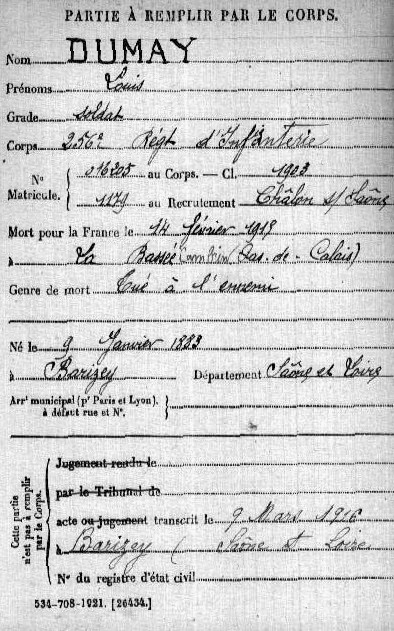 PARTIE À REMPLIR PAR LE CORPS.
Nom DUMAY
Prénoms Louis
Grade soldat
Corps 256e Régt d'Infanterie
No 016205 au Corps. — Cl. 1903
Matricule. 1179 au Recrutement Châlon s/ Saône
Mort pour la France le 14 février 1915
à La Bassée (Pas-de-Calais)
Genre de mort Tué à l'ennemi
Né le 9 Janvier 1883
à Barizey Département Saône et Loire
Arrt municipal (pr Paris et Lyon),
à défaut rue et No.
Cette partie
n'est pas à remplir
par le Corps.
Jugement rendu le
par le Tribunal de
acte ou jugement transcrit le 9 Mars 1916
à Barizey ( Saône et Loire
No du registre d'état civil
534-708-1921. [26434.]